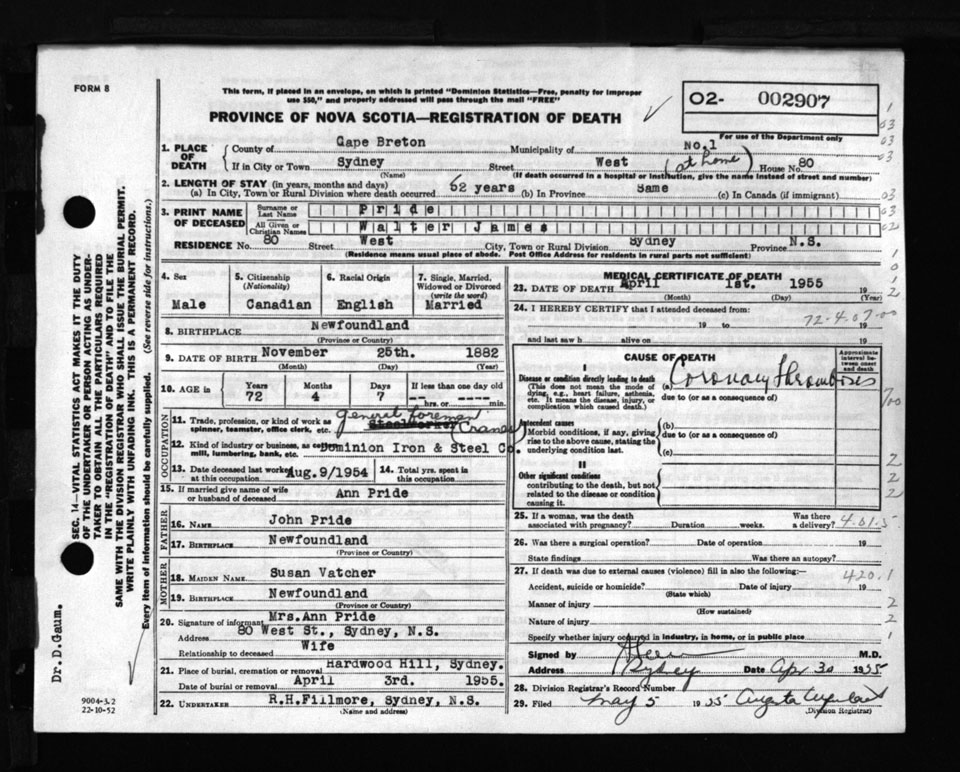 FORM 8
This form, if placed in an envelope, on which is printed "Dominion Statistics—Free, penalty for improper
use $50," and properly addressed will pass through the mail "FREE"
PROVINCE OF NOVA SCOTIA—REGISTRATION OF DEATH
O2- 002907
For use of the Department only
1. PLACE OF DEATH
County of Cape Breton Municipality of No.1
If in City or Town Sydney Street West (at home) House No. 80
(Name) (If death occurred in a hospital or institution, give the name instead of street and number)
2. LENGTH OF STAY (in years, months and days)
(a) In City, Town or Rural Division where death occurred 52 years (b) In Province Same (c) In Canada (if immigrant)
3. PRINT NAME OF DECEASED
Surname or Last Name Pride
All Given or Christian Names Walter James
RESIDENCE No. 80 Street West City, Town or Rural Division Sydney Province N.S.
(Residence means usual place of abode. Post Office Address for residents in rural parts not sufficient)
4. Sex Male
5. Citizenship (Nationality) Canadian
6. Racial Origin English
7. Single, Married, Widowed or Divorced (write the word) Married
8. BIRTHPLACE Newfoundland
(Province or Country)
9. DATE OF BIRTH November 25th. 1882
(Month) (Day) (Year)
10. AGE in Years Months Days If less than one day old
72 4 7 hrs. or min.
OCCUPATION
11. Trade, profession, or kind of work as spinner, teamster, office clerk, etc. general foreman Cranes
12. Kind of industry or business, as cotton mill, lumbering, bank, etc. Dominion Iron & Steel Co.
13. Date deceased last worked at this occupation Aug.9/1954
14. Total yrs. spent in this occupation
15. If married give name of wife or husband of deceased Ann Pride
FATHER
16. NAME John Pride
17. BIRTHPLACE Newfoundland
(Province or Country)
MOTHER
18. MAIDEN NAME Susan Vatcher
19. BIRTHPLACE Newfoundland
(Province or Country)
20. Signature of informant Mrs.Ann Pride
Address 80 West St., Sydney, N.S.
Relationship to deceased Wife
21. Place of burial, cremation or removal Hardwood Hill, Sydney.
Date of burial or removal April 3rd. 1955.
22. UNDERTAKER R.H.Fillmore, Sydney, N.S.
(Name and address)
MEDICAL CERTIFICATE OF DEATH
23. DATE OF DEATH April 1st. 1955 19
(Month) (Day) (Year)
24. I HEREBY CERTIFY that I attended deceased from:
19 to 19
72-4.07.00
and last saw h alive on 19
CAUSE OF DEATH
Approximate interval between onset and death
I
Disease or condition directly leading to death
(This does not mean the mode of dying, e.g., heart failure, asthenia, etc. It means the disease, injury, or complication which caused death.)
(a) Coronary thrombosis
due to (or as a consequence of)
Antecedent causes
Morbid conditions, if any, giving rise to the above cause, stating the underlying condition last.
(b)
due to (or as a consequence of)
(c)
II
Other significant conditions
contributing to the death, but not related to the disease or condition causing it
25. If a woman, was the death associated with pregnancy? Duration weeks. Was there a delivery?
4.01.5
26. Was there a surgical operation? Date of operation 19
State findings Was there an autopsy?
27. If death was due to external causes (violence) fill in also the following:—
420.1
Accident, suicide or homicide? Date of injury 19
(State which)
Manner of injury
(How sustained)
Nature of injury
Specify whether injury occurred in industry, in home, or in public place
Signed by M.D.
Address Sydney Date Apr 30 1955
28. Division Registrar's Record Number
29. Filed May 5 1955 Augusta
(Division Registrar)
SEC. 14—VITAL STATISTICS ACT MAKES IT THE DUTY
OF THE UNDERTAKER OR PERSON ACTING AS UNDER-
TAKER TO OBTAIN ALL THE PARTICULARS REQUIRED
IN THE "REGISTRATION OF DEATH" AND TO FILE THE
SAME WITH THE DIVISION REGISTRAR WHO SHALL ISSUE THE BURIAL PERMIT.
WRITE PLAINLY WITH UNFADING INK. THIS IS A PERMANENT RECORD.
Every item of information should be carefully supplied. (See reverse side for instructions.)
Dr. D.Gaum.
9004-3.2
22-10-52